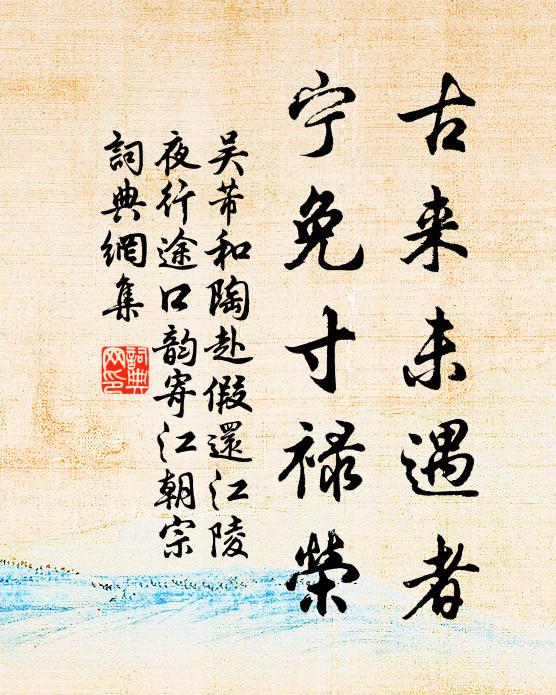 古来未遇者
宁免寸禄榮
吴芾和陶赴假還江陵
夜行途口韵寄江朝宗
詞典網集
詞典网印